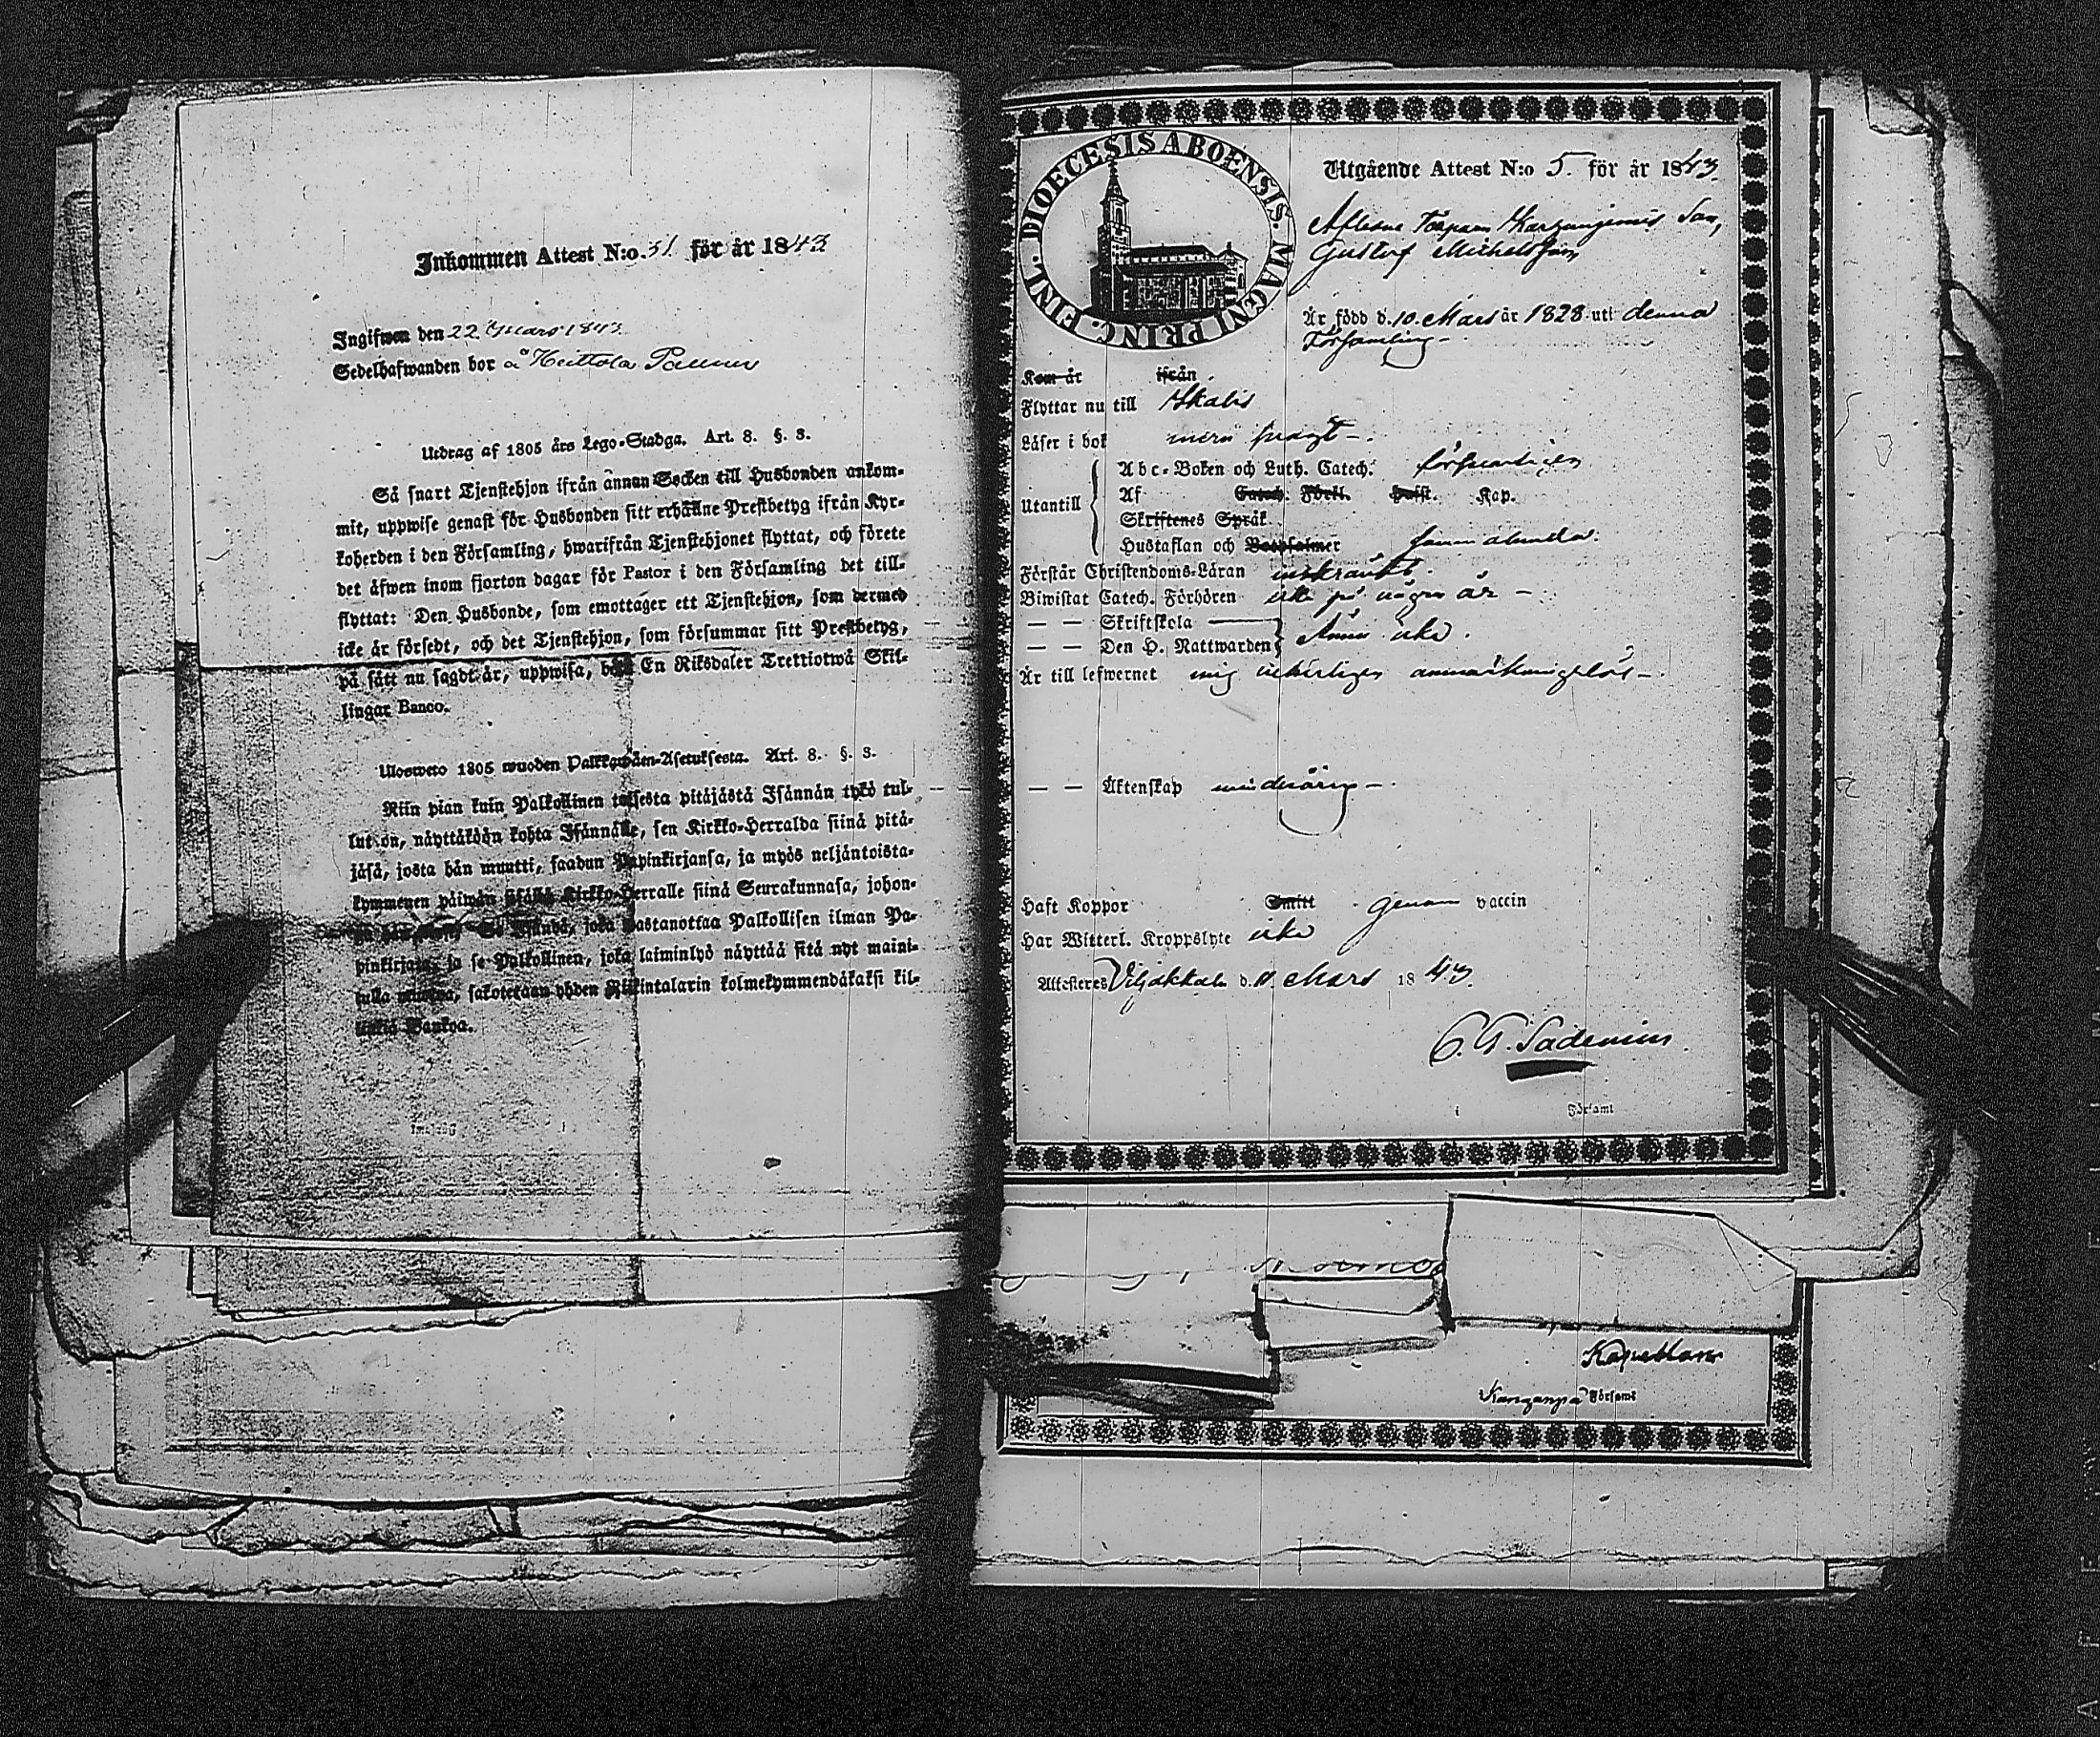 Inkommen Attest N:o 31. för år 1843
Ingifwen den 22 Mars 1843
Sedelhafwanden bor å Heittola
Utdrag af 1805 års Lego-Stadga. Art. 8. §. 3.
Så snart Tjenstehjon ifrån annan Socken till Husbonden ankom-
mit, uppwise genast för Husbonden sitt erhållne Prestbetyg ifrån Kyr-
koherden i den Församling, hwarifrån Tjenstehjonet flyttat, och förete
det äfwen inom fjorton dagar för Pastor i den Församling det till-
flyttat: Den Husbonde, som emottager ett Tjenstehjon, som dermed
icke är försedt, och det Tjenstehjon, som försummar sitt Prestbetyg,
på sätt nu sagdt är, uppwisa, böte En Riksdaler Trettiotwå Skil-
lingar Banco.
Ulosweto 1805 wuoden Palkkawäen-Asetuksesta. Art. 8. §. 3.
Niin pian kuin Palkollinen toisesta pitäjästä Isännän tykö tul-
lut on, näyttäköön kohta Isännälle, sen Kirkko-Herralda siinä pitä-
jäsä, josta hän muutti, saadun Papinkirjansa, ja myös neljäntoista-
kymmenen päiwän sisällä Kirkko-Herralle siinä Seurakunnasa, johon-
joka wastanottaa Palkollisen ilman Pa-
pinkirjata, ja se Palkollinen, joka laiminlyö näyttää sitä nyt maini-
tulla sakotetaan yhden Riikintalarin kolmekymmendäkaksi kil-
Bankoa.
DIOECESIS ABOENSIS. MAGNI PRINC. FINL.
Utgående Attest N:o 5. för år 1843.
Aflidne Torparn Son,
Gustaf Michelsson
Är född d. 10. Mars år 1828 uti denna
Församling -
Kom år ifrån
Flyttar nu till Ikalis
Läser i bok
Utantill
Abc-Boken och Luth. Catech. försvarligen
Af Catech. Förkl. Hufst. Kap.
Skriftenes Språk
Hustaflan och Botpsalmer sammaledes.
Förstår Christendoms-Läran inskränkt.
Biwistat Catech. Förhören icke på några år -
— — Skriftskola
— — Den H. Nattwarden Ännu icke.
Är till lefwernet mig veterligen anmärkningslös -
— — Äktenskap minderårig -
Haft Koppor Smitt genom vaccin
Har Witterl. Kroppslyte icke
Attesteres Viljakkala d. 11 Mars 1843.
C. G. Sadenius
i Församl
Kapellan
Kanganpä Församl